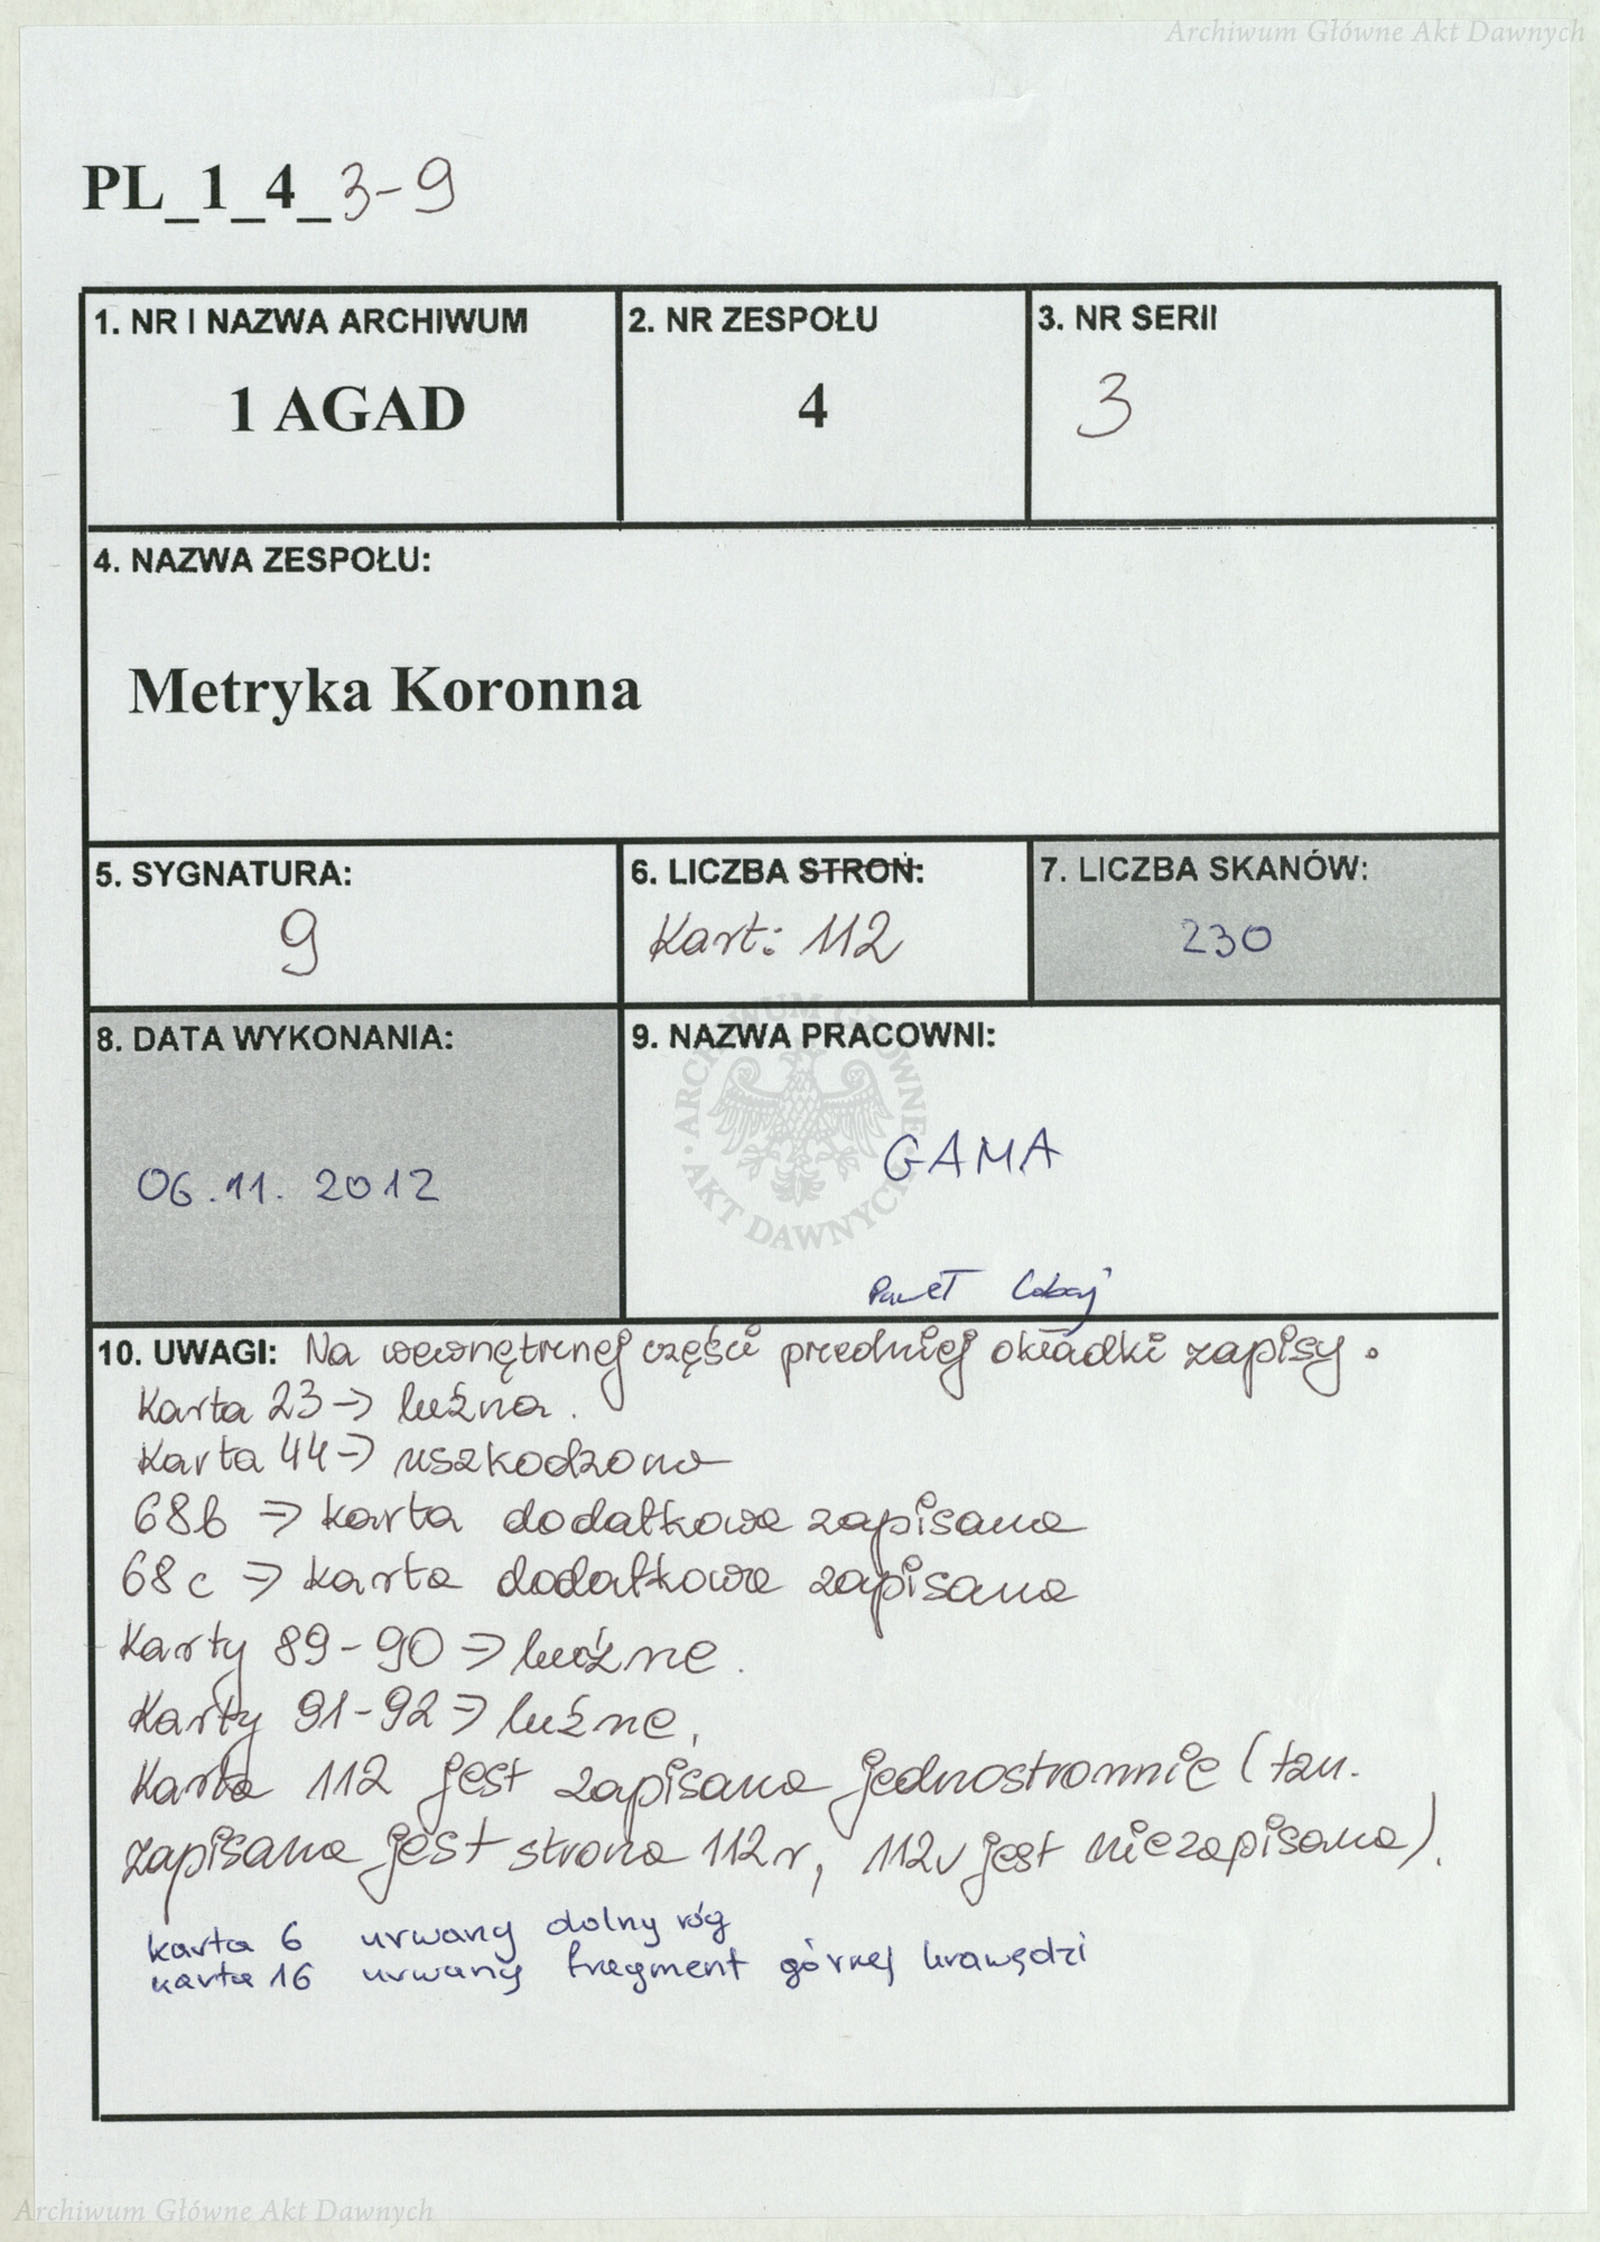 Archiwum Główne Akt Dawnych
PL_1_4_3-9
1. NR I NAZWA ARCHIWUM
1 AGAD
2. NR ZESPOŁU
4
3. NR SERII
3
4. NAZWA ZESPOŁU:
Metryka Koronna
5. SYGNATURA:
9
6. LICZBA STRON:
Kart: 112
7. LICZBA SKANÓW:
230
8. DATA WYKONANIA:
06.11.2012
9. NAZWA PRACOWNI:
GAMA
Paweł
ARCHIWUM GŁÓWNE AKT DAWNYCH
10. UWAGI: Na wewnętrznej części przedniej okładki zapisy.
Karta 23 → luźna.
Karta 44 → uszkodzona
68b ⇒ karta dodatkowa zapisana
68c ⇒ karta dodatkowa zapisana
Karty 89-90 ⇒ luźne.
Karty 91-92 ⇒ luźne.
Karta 112 jest zapisana jednostronnie (tzn.
zapisana jest strona 112r, 112v jest niezapisana).
karta 6 urwany dolny róg
karta 16 urwany fragment górnej krawędzi
Archiwum Główne Akt Dawnych